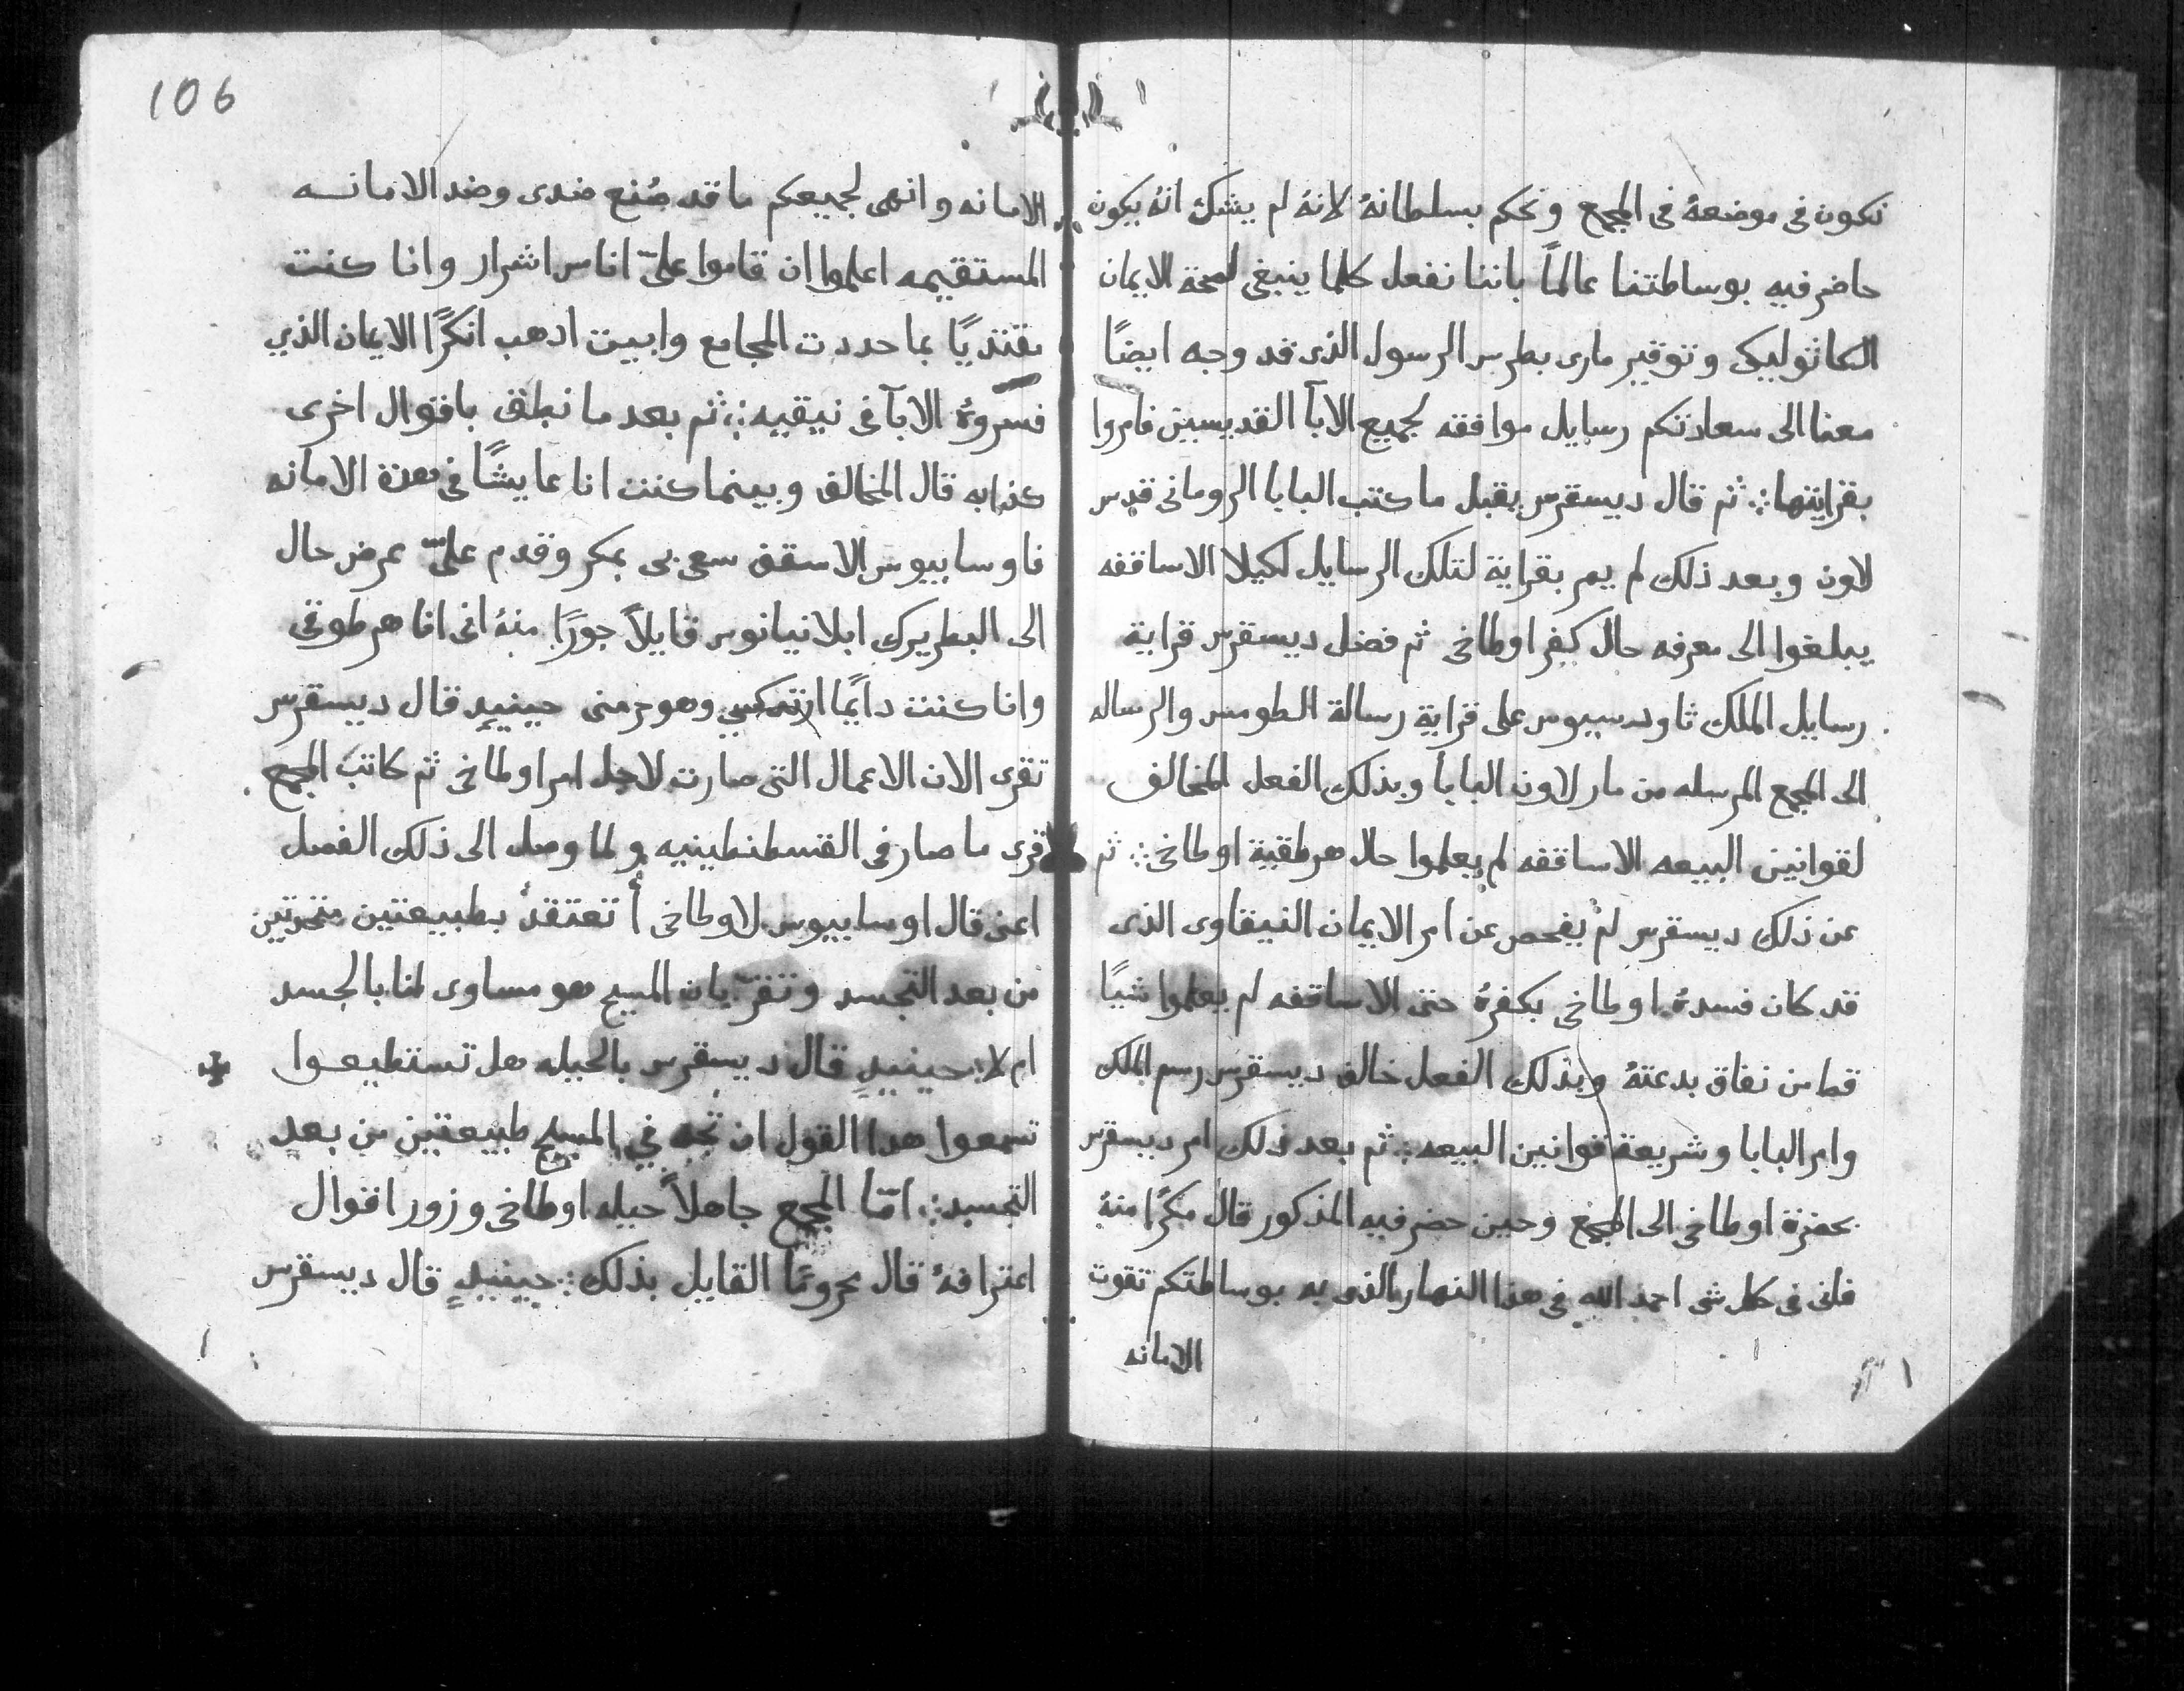 نكون فى موضعهُ فى المجمع ونحكم بسلطانهُ لانهُ لم يشك انهُ يكون
حاضر فيه بوساطتنا عالماً باننا نفعل كلما ينبغى لصحة الايمان
الكاثوليكى وتوقير مارى بطرس الرسول الذى قد وجه ايضًا
معنا الى سعادتكم رسايل موافقه لجميع الابآ القديسين فامروا
بقرايتها ثم قال ديسقرس يقبل ما كتب البابا الرومانى قدس
لاون وبعد ذلك لم يمر بقراية لتلك الرسايل لكيلا الاساقفه
يبلغوا الى معرفه حال كفر اوطاخى ثم فضل ديسقرس قراية
رسايل الملك ثاودسيوس على قراية رسالة الطومس والرساله
الى المجمع المرسله من مار لاون البابا وبذلك الفعل المخالف
لقوانين البيعه الاساقفه لم يعلموا حال هرطقية اوطاخى ثم
عن ذلك ديسقرس لم يفحص عن امر الايمان النيقاوى الذى
قد كان فسدهُ اوطاخى بكفرهُ حتى الاساقفه لم يعلموا شيًا
قط من نفاق بدعتهُ وبذلك الفعل خالف ديسقرس رسم الملك
وامر البابا وشريعة قوانين البيعه ثم بعد ذلك امر ديسقرس
بحضرة اوطاخى الى المجمع وحين حضر فيه المذكور قال مكرًا منهُ
فانى فى كل شى احمد الله فى هذا النهار الذى به بوساطتكم تقوت
الامانه
106
الامانه وانهى لجميعكم ما قد صُنع ضدى وضد الامانه
المستقيمه اعلموا ان قاموا علىّ اناس اشرار وانا كنت
مقتديًا بما حددت المجامع وابيت ادهب انكرًا الايمان الذي
فسروهُ الابآ فى نيقيه ثم بعد ما نطق باقوال اخرى
كذابه قال المخالف وبينما كنت انا عايشًا فى هذة الامانه
فاوسابيوس الاسقف سعى بى بمكر وقدم علىّ عرض حال
الى البطريرك ابلانيانوس قايلاً جورًا منهُ انى انا هرطوقى
وانا كنت دايمًا ارتدكسي وهو حرمنى حينيدٍ قال ديسقرس
تقرى الان الاعمال التى صارت لاجل امر اوطاخى ثم كاتب المجمع
قرى ما صار فى القسطنطينيه ولما وصل الى ذلك الفصل
اعنى قال اوسابيوس لاوطاخى أ تعتقد بطبيعتين متحدتين
من بعد التجسد وتقرّ بان المسيح هو مساوى لنا بالجسد
ام لا حينيدٍ قال ديسقرس بالحيله هل تستطيعوا
تسمعوا هدا القول ان في المسيح طبيعتين من بعد
التجسد امّا المجمع جاهلاً حيله اوطاخى وزور اقوال
اعترافهُ قال محرومًا القايل بذلك حينيدٍ قال ديسقرس